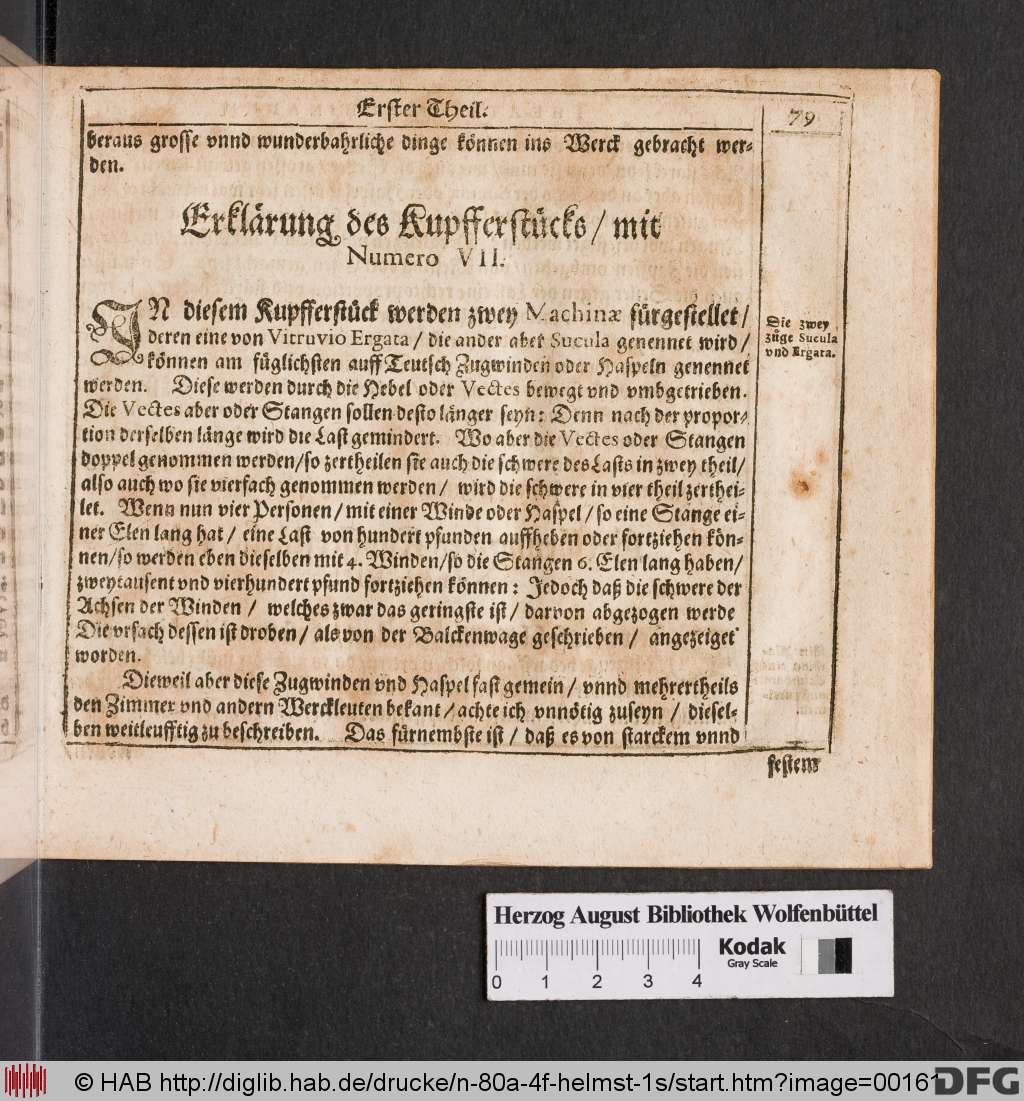 Erster Theil.
79
beraus grosse vnnd wunderbahrliche dinge können ins Werck gebracht wer-
den.
Erklärung des Kupfferstücks / mit
Numero VII.
IN diesem Kupfferstück werden zwey Machinæ fürgestellet /
deren eine von Vitruvio Ergata / die ander aber Sucula genennet wird /
können am füglichsten auff Teutsch Zugwinden oder Haspeln genennet
werden. Diese werden durch die Hebel oder Vectes bewegt vnd vmbgetrieben.
Die Vectes aber oder Stangen sollen desto länger seyn: Denn nach der propor-
tion derselben länge wird die Last gemindert. Wo aber die Vectes oder Stangen
doppel genommen werden / so zertheilen sie auch die schwere des Lasts in zwey theil /
also auch wo sie vierfach genommen werden / wird die schwere in vier theil zerthei-
let. Wenn nun vier Personen / mit einer Winde oder Haspel / so eine Stange ei-
ner Elen lang hat / eine Last von hundert pfunden auffheben oder fortziehen kön-
nen / so werden eben dieselben mit 4. Winden / so die Stangen 6. Elen lang haben /
zweytausent vnd vierhundert pfund fortziehen können: Jedoch daß die schwere der
Achsen der Winden / welches zwar das geringste ist / darvon abgezogen werde
Die vrsach dessen ist droben / als von der Balckenwage geschrieben / angezeiget
worden.
Dieweil aber diese Zugwinden vnd Haspel fast gemein / vnnd mehrertheils
den Zimmer vnd andern Werckleuten bekant / achte ich vnnötig zuseyn / diesel-
ben weitleufftig zu beschreiben. Das fürnembste ist / daß es von starckem vnnd
festem
Die zwey
züge Sucula
vnd Ergata.
Herzog August Bibliothek Wolfenbüttel
Kodak
Gray Scale
0 1 2 3 4
© HAB http://diglib.hab.de/drucke/n-80a-4f-helmst-1s/start.htm?image=00161
DFG